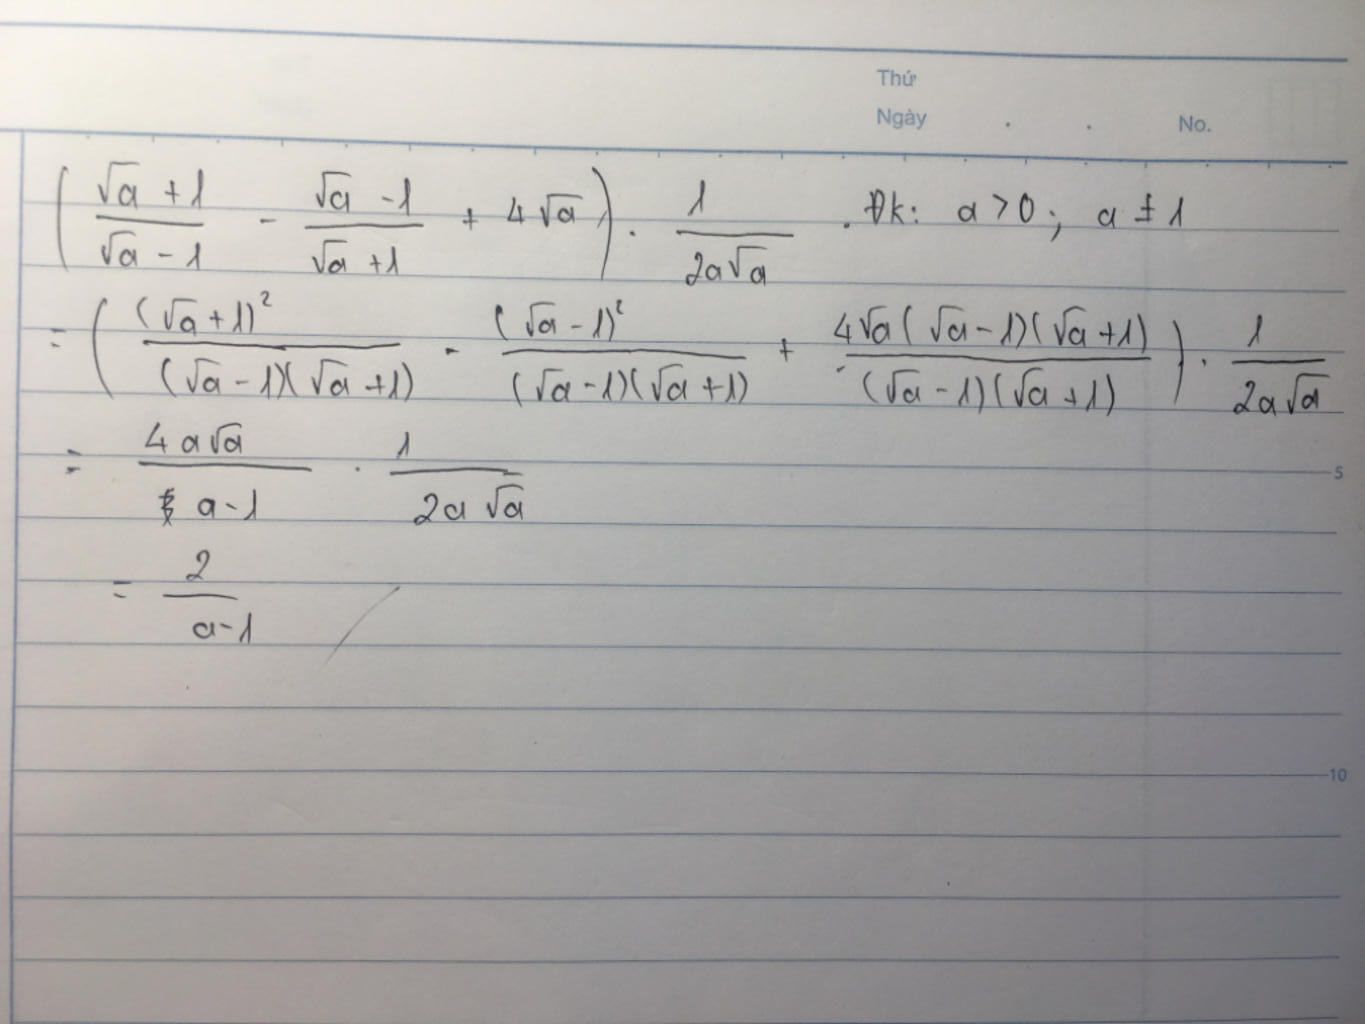 Thứ
Ngày . . No.
( (√a + 1)/(√a - 1) - (√a - 1)/(√a + 1) + 4√a ) . 1/(2a√a) . Đk: a > 0 ; a ≠ 1
= ( (√a + 1)²/((√a - 1)(√a + 1)) - (√a - 1)²/((√a - 1)(√a + 1)) + 4√a(√a - 1)(√a + 1)/((√a - 1)(√a + 1)) ) . 1/(2a√a)
= 4a√a/(a - 1) . 1/(2a√a)
5
= 2/(a - 1)
10